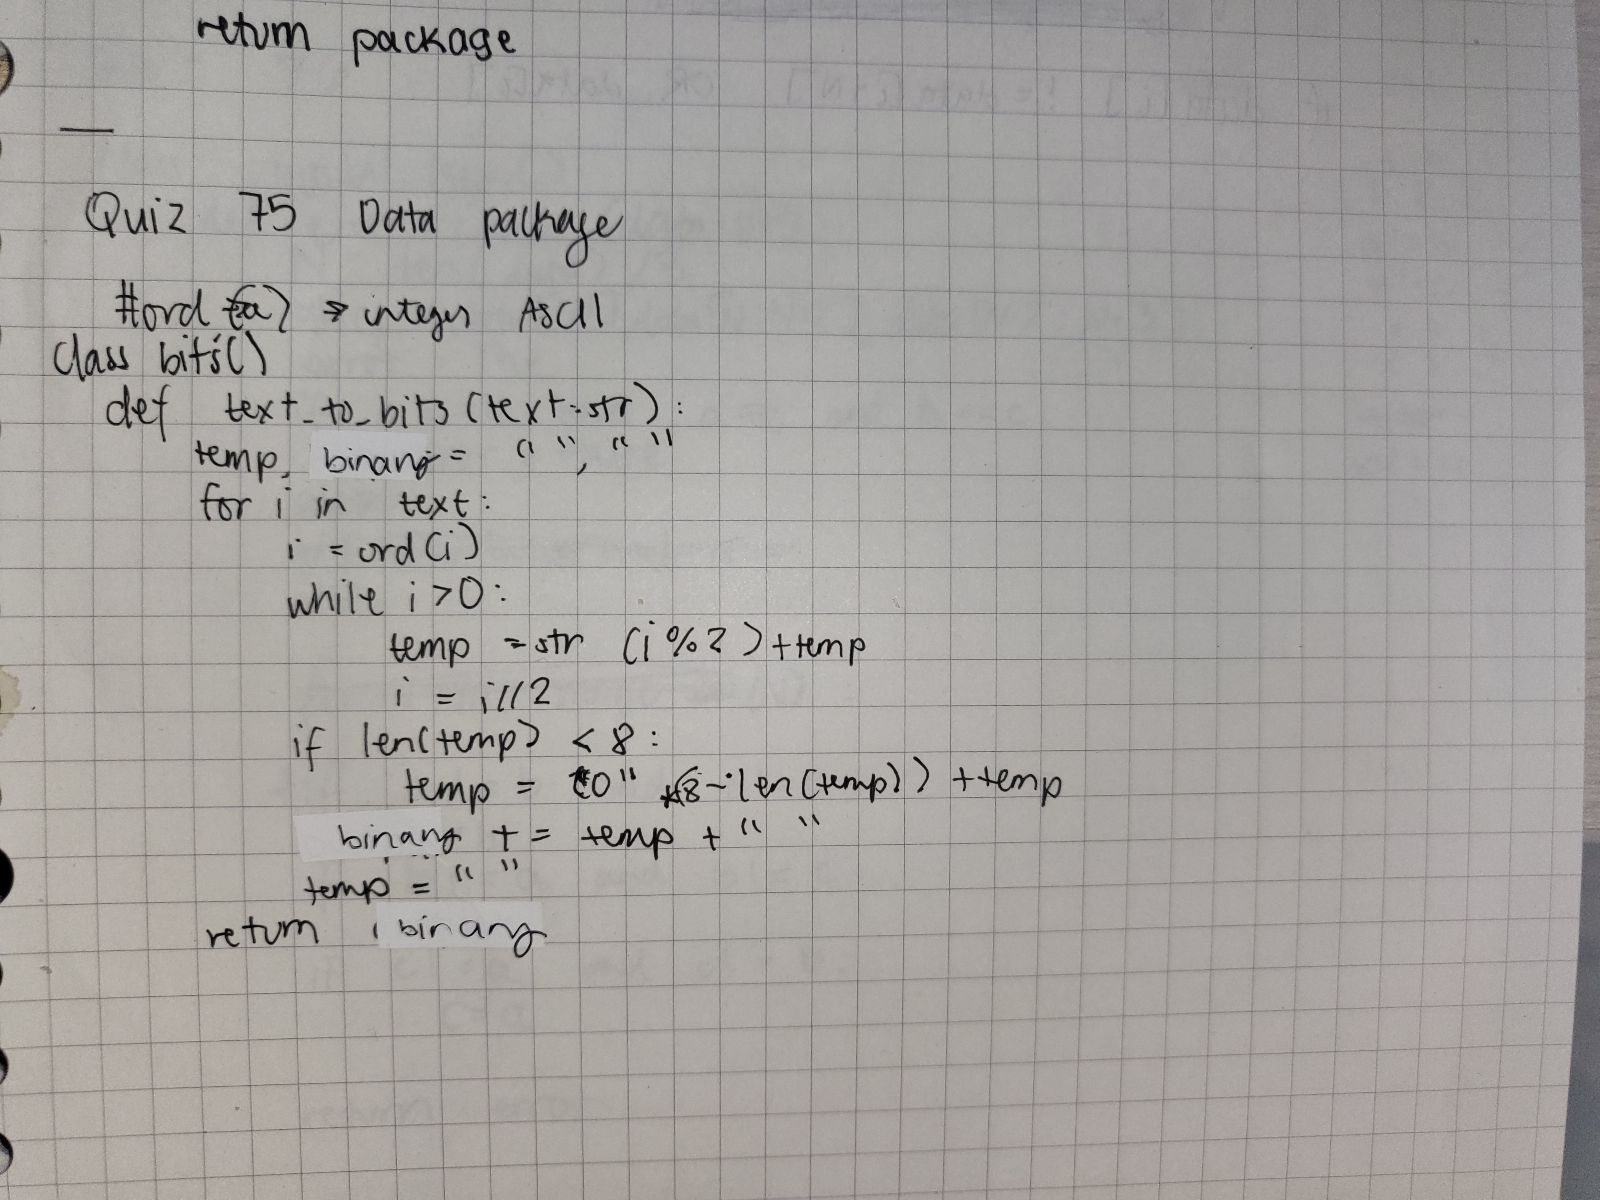 return package
Quiz 75 Data package
#ord (a) → integer ASCII
class bits()
def text_to_bits (text:str):
temp, binang = " ", " "
for i in text:
i = ord(i)
while i > 0:
temp = str (i % 2) + temp
i = i//2
if len(temp) < 8:
temp = "0" *(8-len(temp)) + temp
binang += temp + " "
temp = " "
return binang